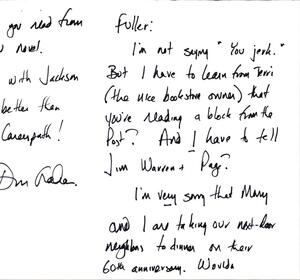 you read from
novel.
with Jackson
better than
Careerpath!
Don Graham
Fuller:
I'm not saying "You jerk."
But I have to learn from Terri
(the nice bookstore owner) that
you're reading a block from the
Post? And I have to tell
Jim Warren + Peg?
I'm very sorry that Mary
and I are taking our next-door
neighbors to dinner on their
60th anniversary. Would